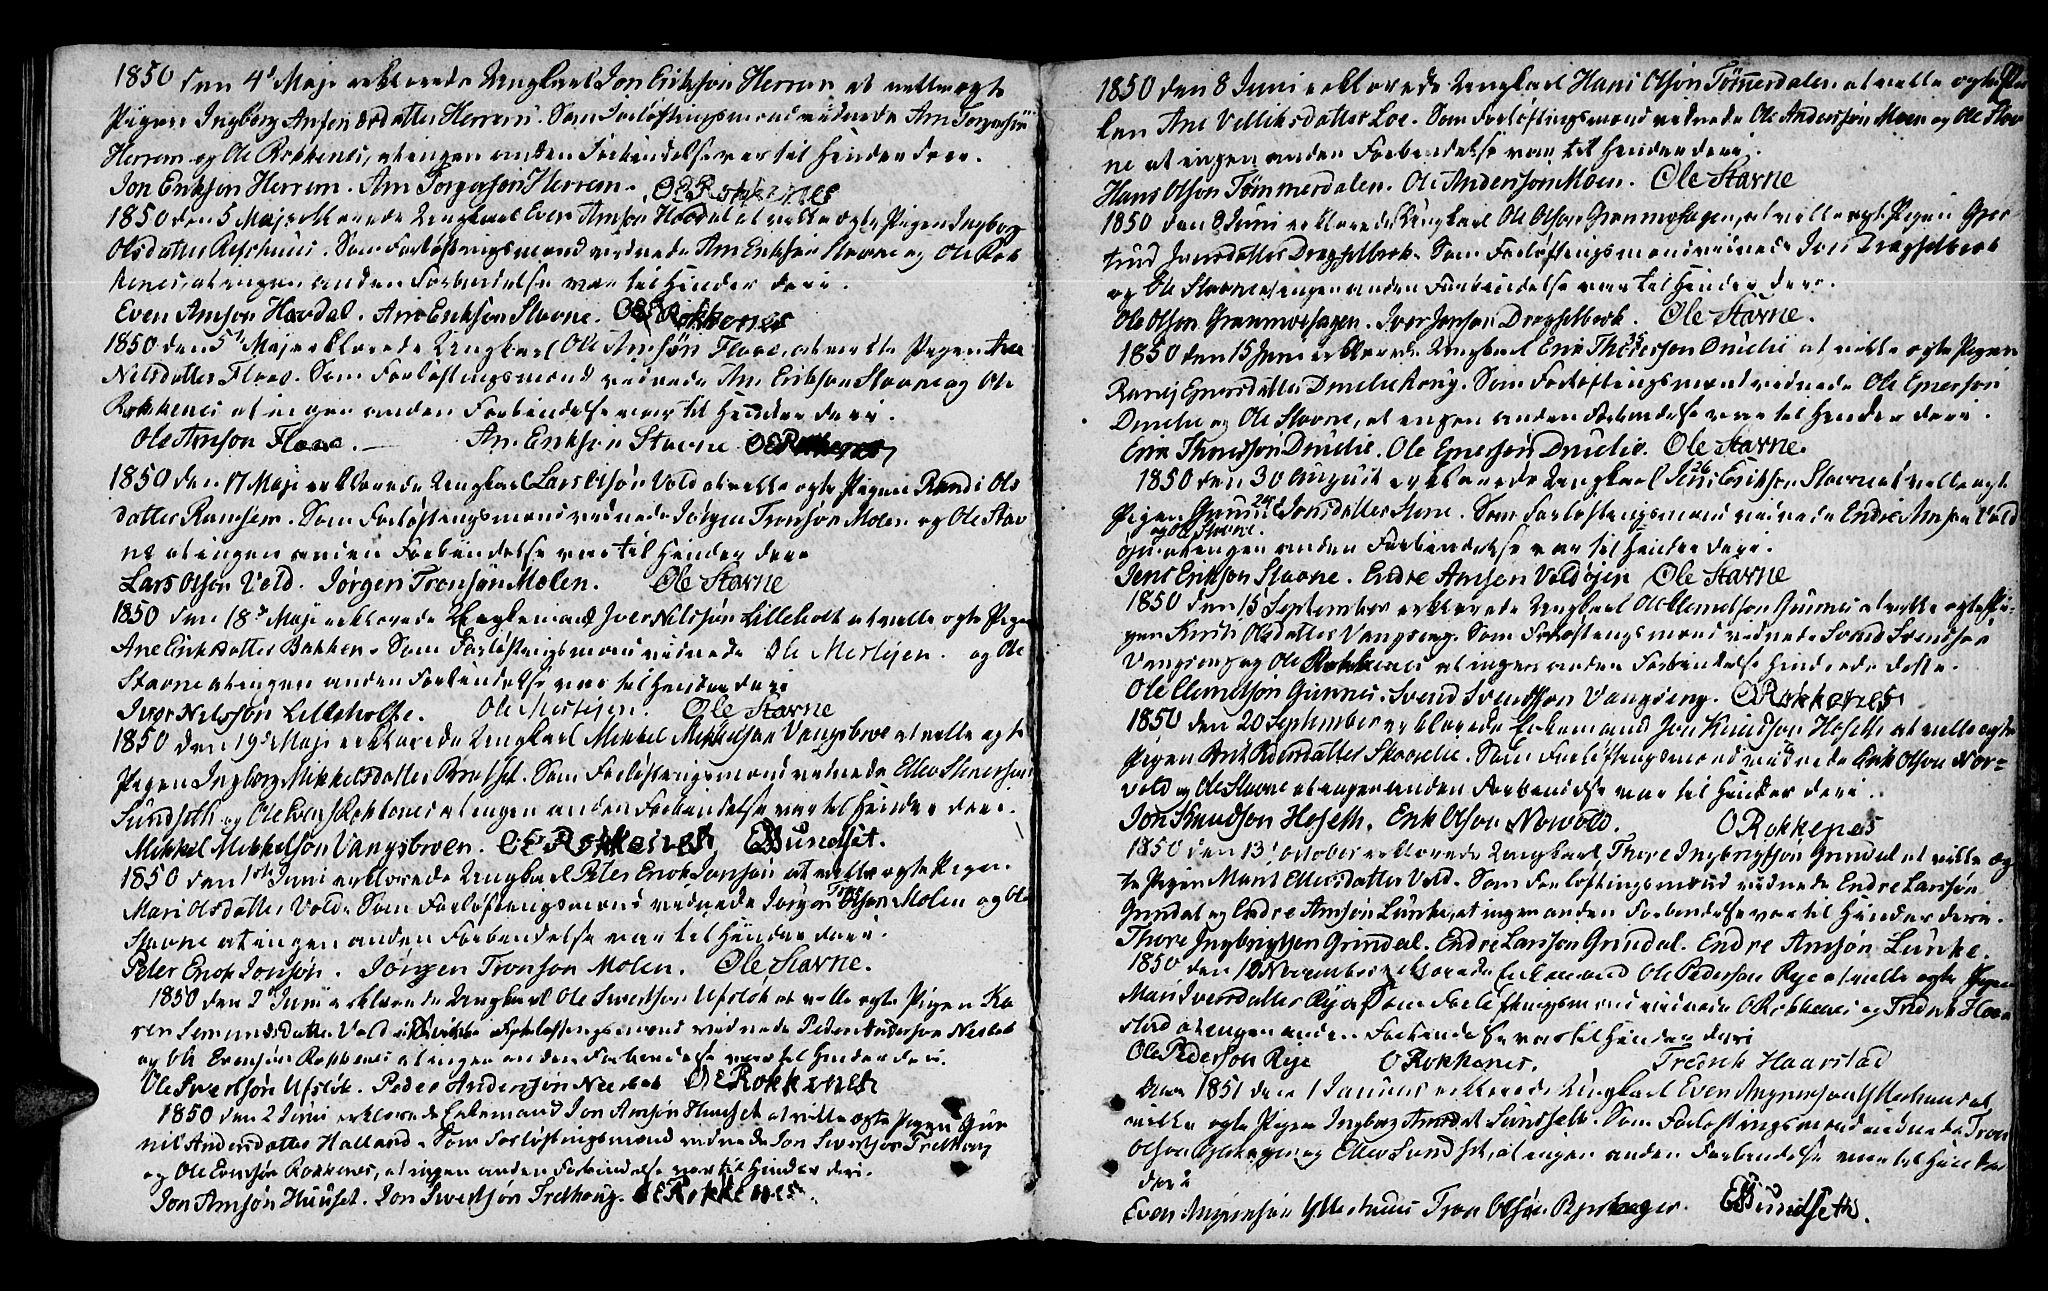 1850 den 4d Maji erklærede Ungkarl Jon Erikson Herrem at ville ægte
Pigen Ingborg Amsen datter Herrem. Som Forløftningsmænd vidnede Arn Torgerson
Herrem og Ole Rokkenes, at ingen anden Forbindelse var til Hinder deri.
Jon Erikson Herrem. Arn Torgerson Herrem. OERokkenes
1850 den 5 Maji erklærede Ungkarl Even Amson Hovdal at ville ægte Pigen Ingborg
Olsdatter. Som Forløftningsmænd vidnede Arn Erikson Stavne og Ole Rok
kenes, at ingen anden Forbindelse var til Hinder deri.
Even Amson Havdal. Arn Erikson Stavne. OERokkenes
1850 den 5d Maji erklærede Ungkarl Ole Amsøn Floee, at ægte Pigen Ane
Nilsdatter Floee. Som Forløftningsmænd vidnede Arn Erikson Stavne og Ole
Rokkenes at ingen anden Forbindelse var til Hinder deri.
Ole Amson Floee. — Arn Erikson Stavne OERokkenes
1850 den 17 Maji erklærede Ungkarl Lars Olsøn Vold at ville ægte Pigen Randi Ols
datter Ramsem. Som Forløftningsmænd vidnede Jørgen Tronson Molen og Ole Stav
ne at ingen anden Forbindelse var til Hinder deri
Lars Olsøn Vold. Jørgen Tronsøn Molen. Ole Stavne
1850 den 18d Maji erklærede Iver Nilssøn Lilleholt at ville ægte Pigen
Ane Eriksdatter Bakken. Som Forløftningsmænd vidnede Ole Merlisen. og Ole
Stavne at ingen anden Forbindelse var til Hinder deri
Iver Nilssøn Lilleholte. Ole Ole Stavne
1850 den 19d Maji erklærede Ungkarl Mikkel Mikkelson Vangsbroe at ville ægte
Pigen Ingborg Mikkelsdatter. Som Forløftningsmænd vidnede Ellev Stenersøn
Sundseth og Ole Evens Rokkenes at ingen anden Forbindelse var til Hinder deri.
Mikkel Mikkelsøn Vangsbroen. OERokkenes ESSundset.
1850 den 1ste Juni erklærede Ungkarl Peter Erich Jonsøn at ville ægte Pigen
Mari Olsdatter Vold. Som Forløftningsmænd vidnede Jørgen Tronson Molen og Ole
Stavne at ingen anden Forbindelse var til Hinder deri.
Peter Erich Jonsøn. Jørgen Tronson Molen. Ole Stavne.
1850 den 2d Juni erklærede Ungkarl Ole Sivertson Ufsløk at ville ægte Pigen Ka
ren datter Vold. Forløftningsmænd vidnede Peder Anderson Nesbek
og Ole Evensøn Rokkenes at ingen anden Forbindelse var til Hinder deri.
Ole Sivertsøn Ufsløk. Peder Andersøn Nesbek OERokkenes
1850 den 2 Juni erklærede Enkemand Jon Amsøn Huuset at ville ægte Pigen Gun
nil Andersdatter Halland. Som Forløftningsmænd vidnede Jon Sivertson Trethoug
og Ole Evensøn Rokkenes, at ingen anden Forbindelse var til Hinder deri.
Jon Amsøn Huuset. Jon Sivertsøn Trethoug. OERokkenes.
1850 den 8 Juni erklærede Ungkarl Hans Olsøn Tømmerdalen at ville ægte
Ane datter Loe. Som Forløftningsmænd vidnede Ole Andersøn Moen og Ole Stav
ne at ingen anden Forbindelse var til Hinder deri.
Hans Olson Tømmerdalen. Ole Anderson Moen. Ole Stavne
1850 den 8 Juni erklærede Ungkarl Ole Olson Grønmohagen, at ville ægte Pigen Gjer
trud Jonsdatter Dragselbrek. Som Forløftningsmænd vidnede Iver Dragselbrek
og Ole Stavne at ingen anden Forbindelse var til Hinder deri.
Ole Olson Grønmohagen. Iver Jonson Dragselbrek. Ole Stavne.
1850 den 15 Juni erklærede Ungkarl Erik Thoresson Druelie at ville ægte Pigen
Ranej Ejnersdatter. Som Forløftningsmænd vidnede Ole Ejnerson
Druelie og Ole Stavne, at ingen anden Forbindelse var til Hinder deri.
Erik Thoresson Druelie. Ole Ejnersøn Druelie. Ole Stavne.
1850 den 30 August erklærede Ungkarl Jens 26 Erikson Stavne at ville ægte
Pigen 24 Jonsdatter Stene. Som Forløftningsmænd vidnede Endre Amsen Vold
og Ole Stavne.
øjen at ingen anden Forbindelse var til Hinder deri.
Jens Erikson Stavne. Endre Amsen Voldøjen Ole Stavne
1850 den 15 September erklærede Ungkarl Ole Clemetson Gunnes at ville ægte Pi-
gen Kirsti Olsdatter Vangseng. Som Forløftningsmænd vidnede Svend Svendsen
Vangseng og Ole Rokkenes at ingen anden Forbindelse hindrede dette.
Ole Clemetsøn Gunnes. Svend Svendsson Vangseng. ORokkenes
1850 den 20 September erklærede Enkemand Jon Knudson Hoseth at ville ægte
Pigen Brit Pedersdatter. Som Forløftningsmænd vidnede Erik Olson Nor=
vold og Ole Stavne at ingen anden Forbindelse var til Hinder deri.
Jon Knudson Hoseth. Erik Olson Norvold. ORokkenes
1850 den 13d October erklærede Ungkarl Thore Ingbrigtsøn Grindal at ville æg
te Pigen Marit Ellevsdatter Vold. Som Forløftningsmænd vidnede Endre Larssøn
Grindal og Endre Amsøn Lunke, at ingen anden Forbindelse var til Hinder deri.
Thore Ingbrigtsen Grindal. Endre Larsson Grindal. Endre Amsøn Lunke.
1850 den 10 November erklærede Enkemand Ole Pederson Rye at ville ægte Pigen
Mari Iversdatter Rye. Som Forløftningsmænd vidnede ORokkenes og Fredrik Haar
stad at ingen anden Forbindelse var til Hinder deri
Ole Pederson Rye ORokkenes. Fredrik Haarstad
Aar 1851 den 1 Januar erklærede Ungkarl Even at
ville ægte Pigen Ingborg Arnsdat Sundseth. Som Forløftningsmænd vidnede Tron
Olson og Ellev Sundset, at ingen anden Forbindelse var til Hinder
deri
Even Tron Olsøn ESSundseth.